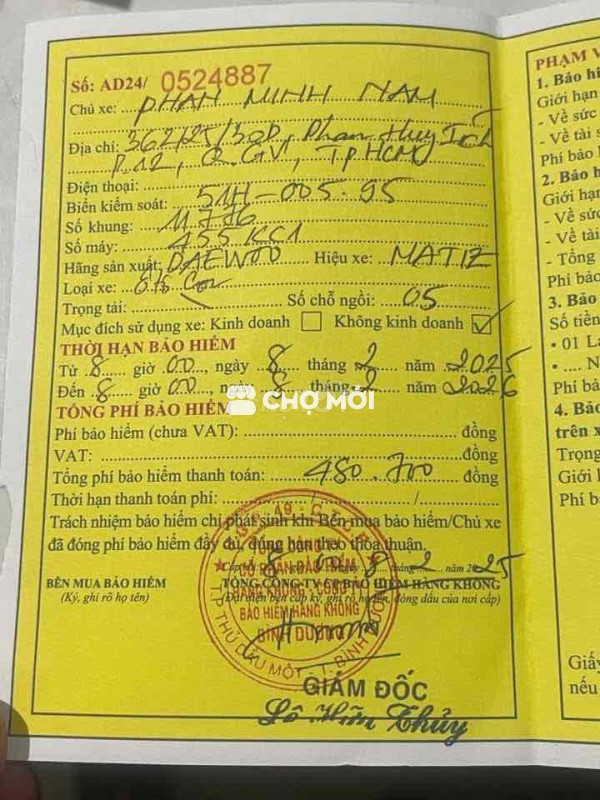 Số: AD24/ 0524887
Chủ xe: PHAN MINH NAM
Địa chỉ: 362/25/30D, Phan Huy Ích
P.12, Q.GV, TPHCM
Điện thoại:
Biển kiểm soát: 51H-005.95
Số khung: 11776
Số máy: 455KC1
Hãng sản xuất: DAEWOO Hiệu xe: MATIZ
Loại xe: ôtô Con
Trọng tải: Số chỗ ngồi: 05
Mục đích sử dụng xe: Kinh doanh ☐ Không kinh doanh ☑
THỜI HẠN BẢO HIỂM
Từ 8 giờ 00, ngày 8 tháng 2 năm 2025
Đến 8 giờ 00, ngày 8 tháng 2 năm 2026
CHỢ MỚI
TỔNG PHÍ BẢO HIỂM
Phí bảo hiểm (chưa VAT): đồng
VAT: đồng
Tổng phí bảo hiểm thanh toán: 480.700 đồng
Thời hạn thanh toán phí: / /
Trách nhiệm bảo hiểm chỉ phát sinh khi Bên mua bảo hiểm/Chủ xe
đã đóng phí bảo hiểm đầy đủ, đúng hạn theo thỏa thuận.
8 2 năm 2025
BÊN MUA BẢO HIỂM TỔNG CÔNG TY CP BẢO HIỂM HÀNG KHÔNG
(Ký, ghi rõ họ tên) (Đại diện bên cấp ký, ghi rõ họ tên, đóng dấu của nơi cấp)
TỔNG CÔNG TY
CỔ PHẦN BẢO HIỂM
HÀNG KHÔNG - CÔNG TY
BẢO HIỂM HÀNG KHÔNG
BÌNH DƯƠNG
TP THỦ DẦU MỘT - T. BÌNH DƯƠNG
GIÁM ĐỐC
Lê Hữu Thủy
PHẠM V
1. Bảo hi
Giới hạn
- Về sức
- Về tài s
Phí bảo
2. Bảo h
Giới hạn
- Về sức
- Về tài
- Tổng
Phí bảo
3. Bảo
Số tiền
• 01 Lá
• .... N
Phí bả
4. Bảo
trên x
Trọng
Giới
Phí b
Giấy
nếu